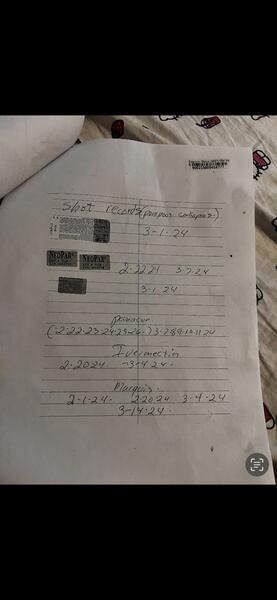 Shot records (
3-1-24
NEOPAR® NEOPAR®
2-22 24 3-7-24
3-1-24
panacur
(2-22-23-24-25-26-) 3-7-8-9-10-11 24
Ivermectin
2-20 24 -3-4 24-
Marquis-
2-1-24- 2 20 24 3-4-24
3-14-24-